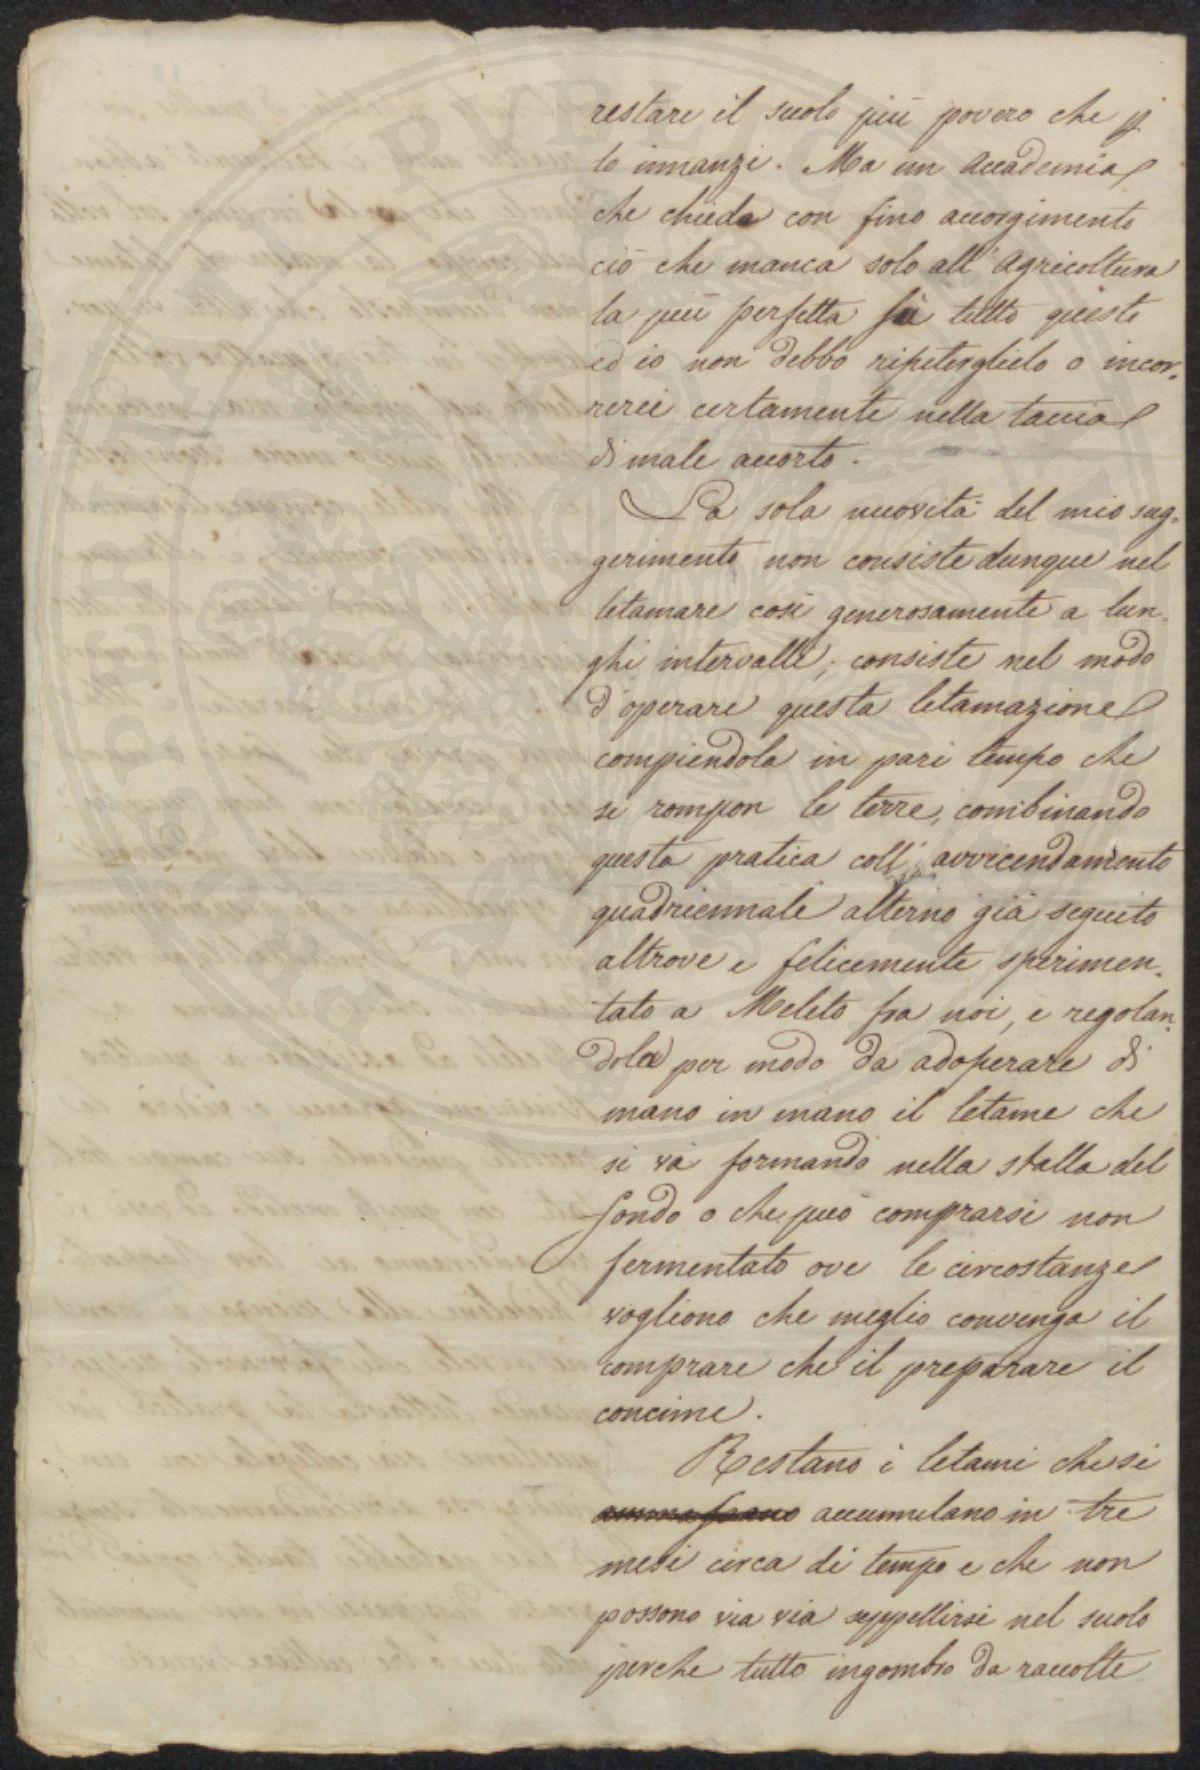 restare il suolo più povero che p
lo innanzi. Ma un Accademia
che chieda con fino accorgimento
ciò che manca solo all'Agricoltura
la più perfetta sà tutto questo
ed io non debbo ripeterglielo o incor-
rerei certamente nella taccia
di male accorto.
La sola nuovità del mio sug-
gerimento non consiste dunque nel
letamare così generosamente a lun-
ghi intervalli; consiste nel modo
d'operare questa letamazione
compiendola in pari tempo che
si rompon le terre, combinando
questa pratica coll'avvicendamento
quadriennale alterno già seguito
altrove e felicemente sperimen-
tato a Meleto fra noi, e regolan-
dola per modo da adoperare di
mano in mano il letame che
si và formando nella stalla del
fondo o che può comprarsi non
fermentato ove le circostanze
vogliono che meglio convenga il
comprare che il preparare il
concime.
Restano i letami che si
accumulano in tre
mesi circa di tempo e che non
possono via via seppellirsi nel suolo
perche tutto ingombro da raccolte